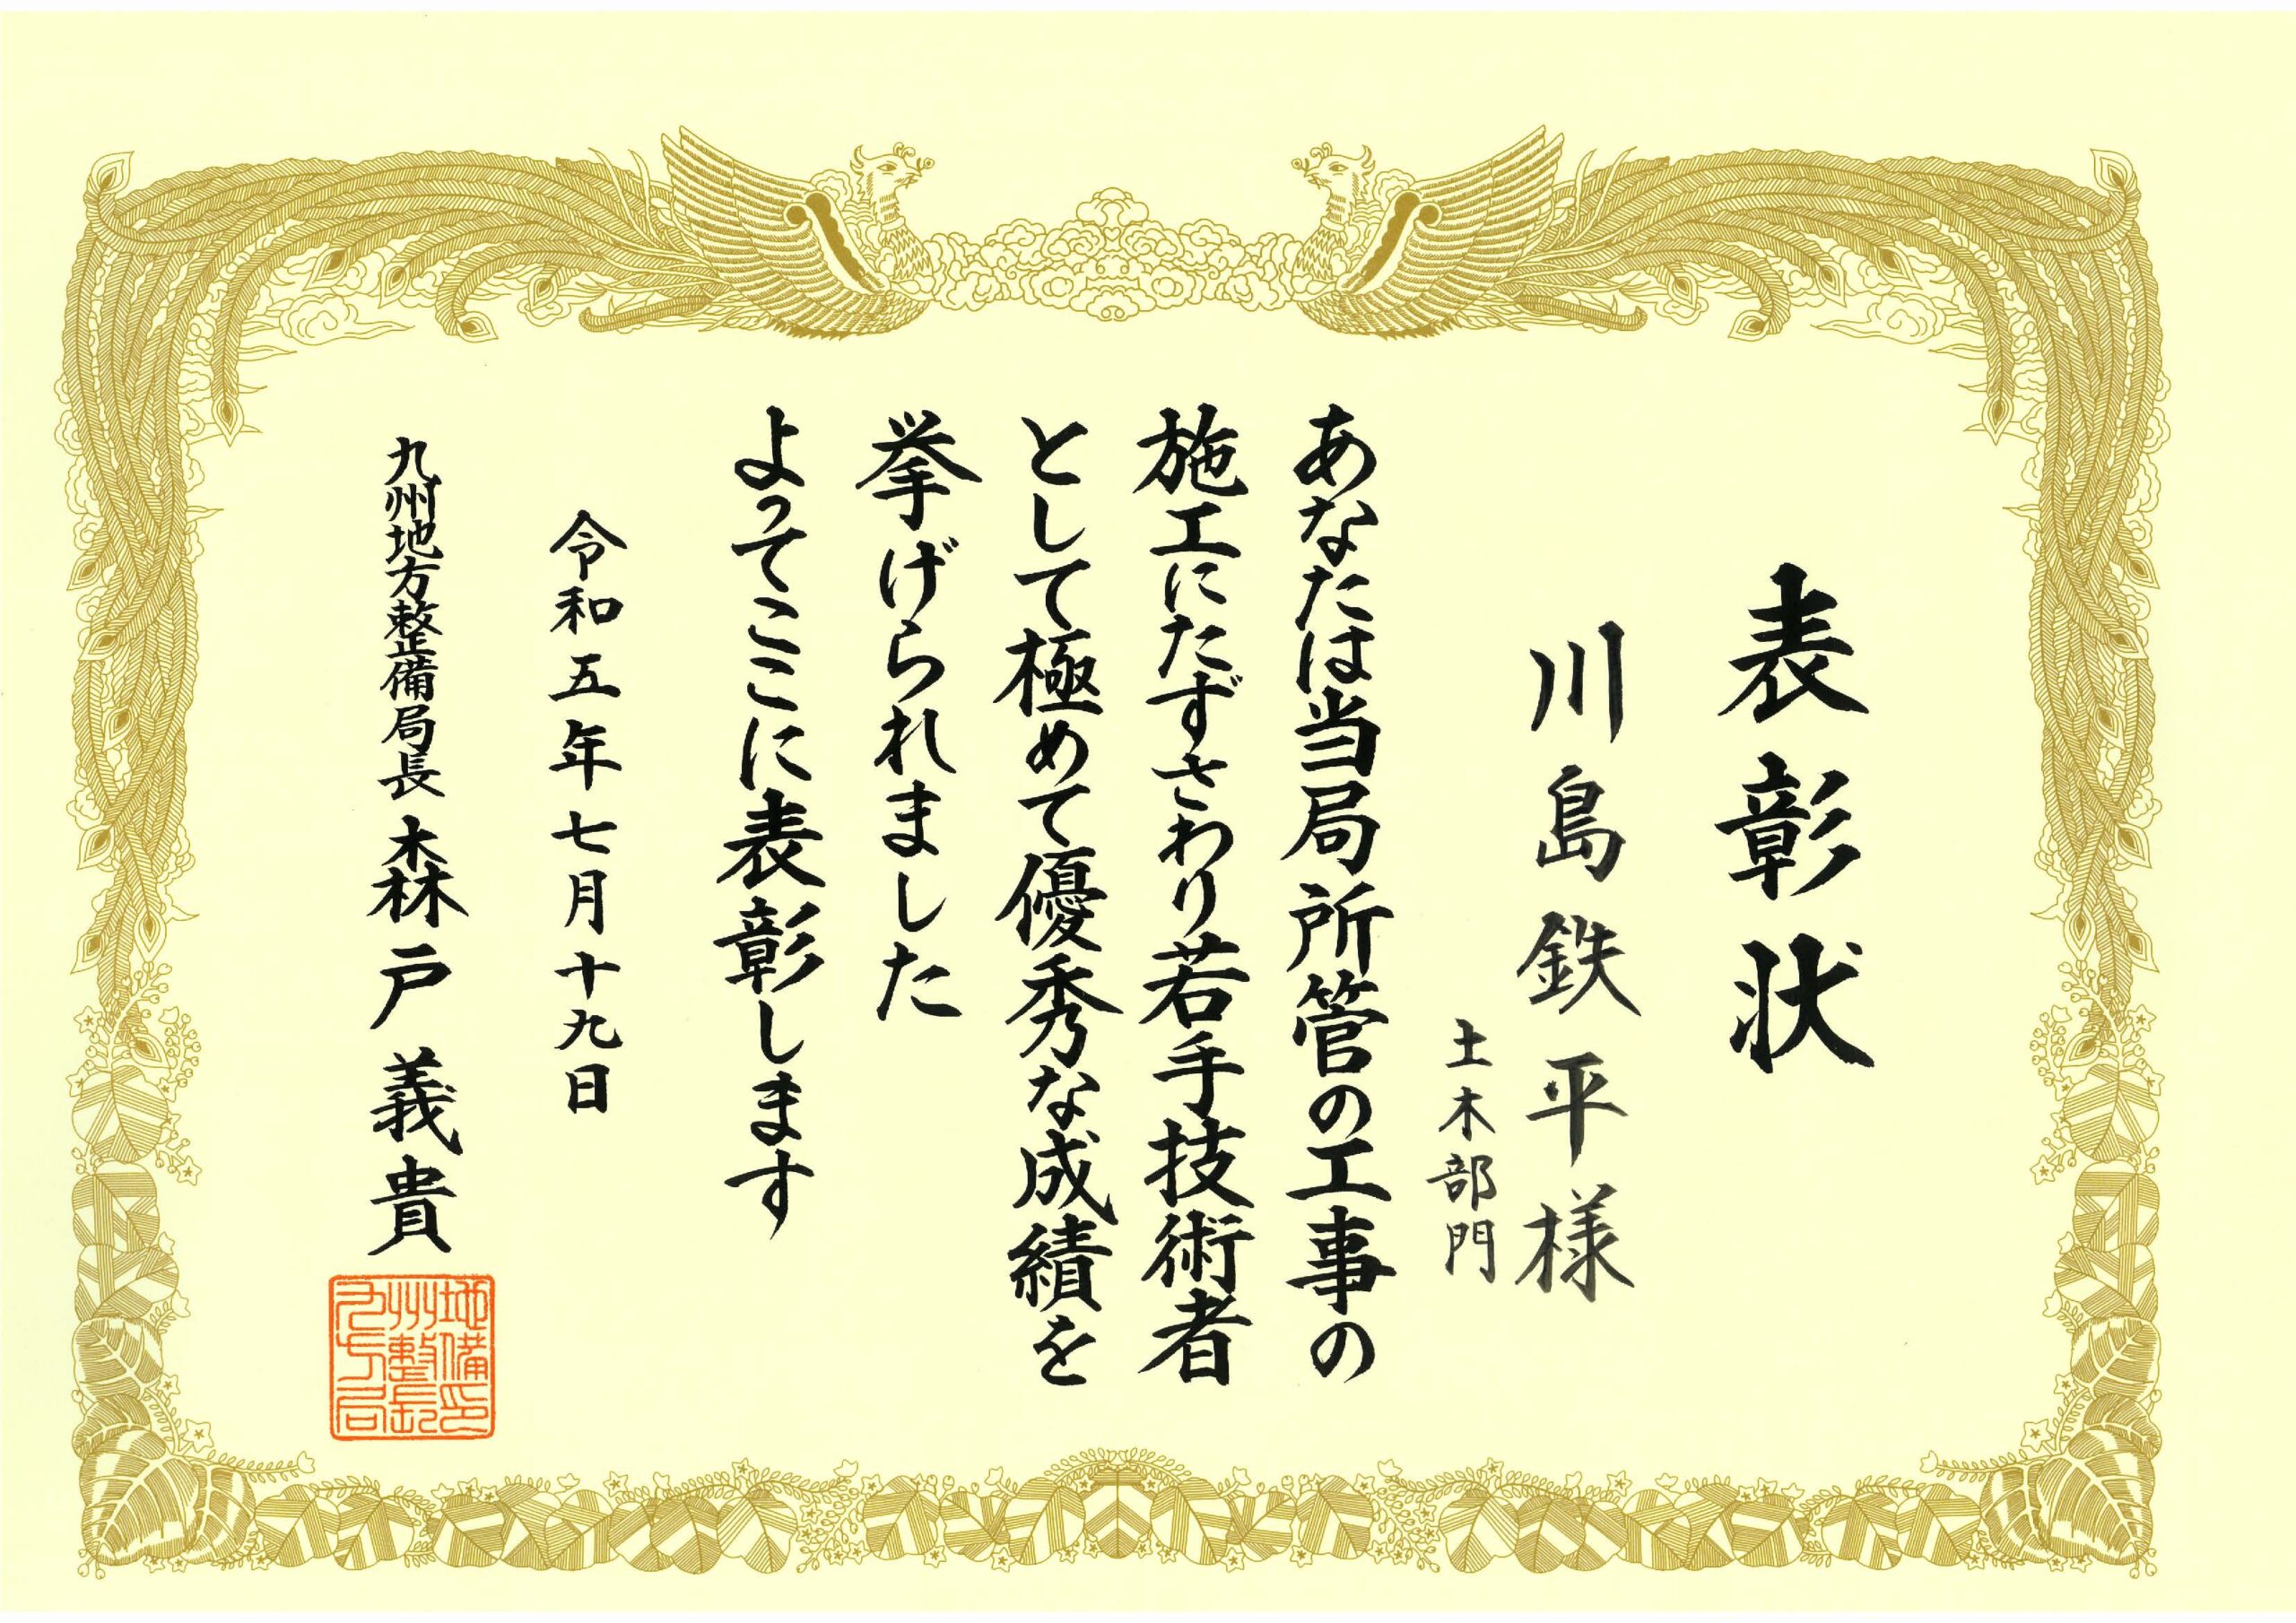 表彰状
川島鉄平様
土木部門
あなたは当局所管の工事の
施工にたずさわり若手技術者
として極めて優秀な成績を
挙げられました
よってここに表彰します
令和五年七月十九日
九州地方整備局長 森戸義貴